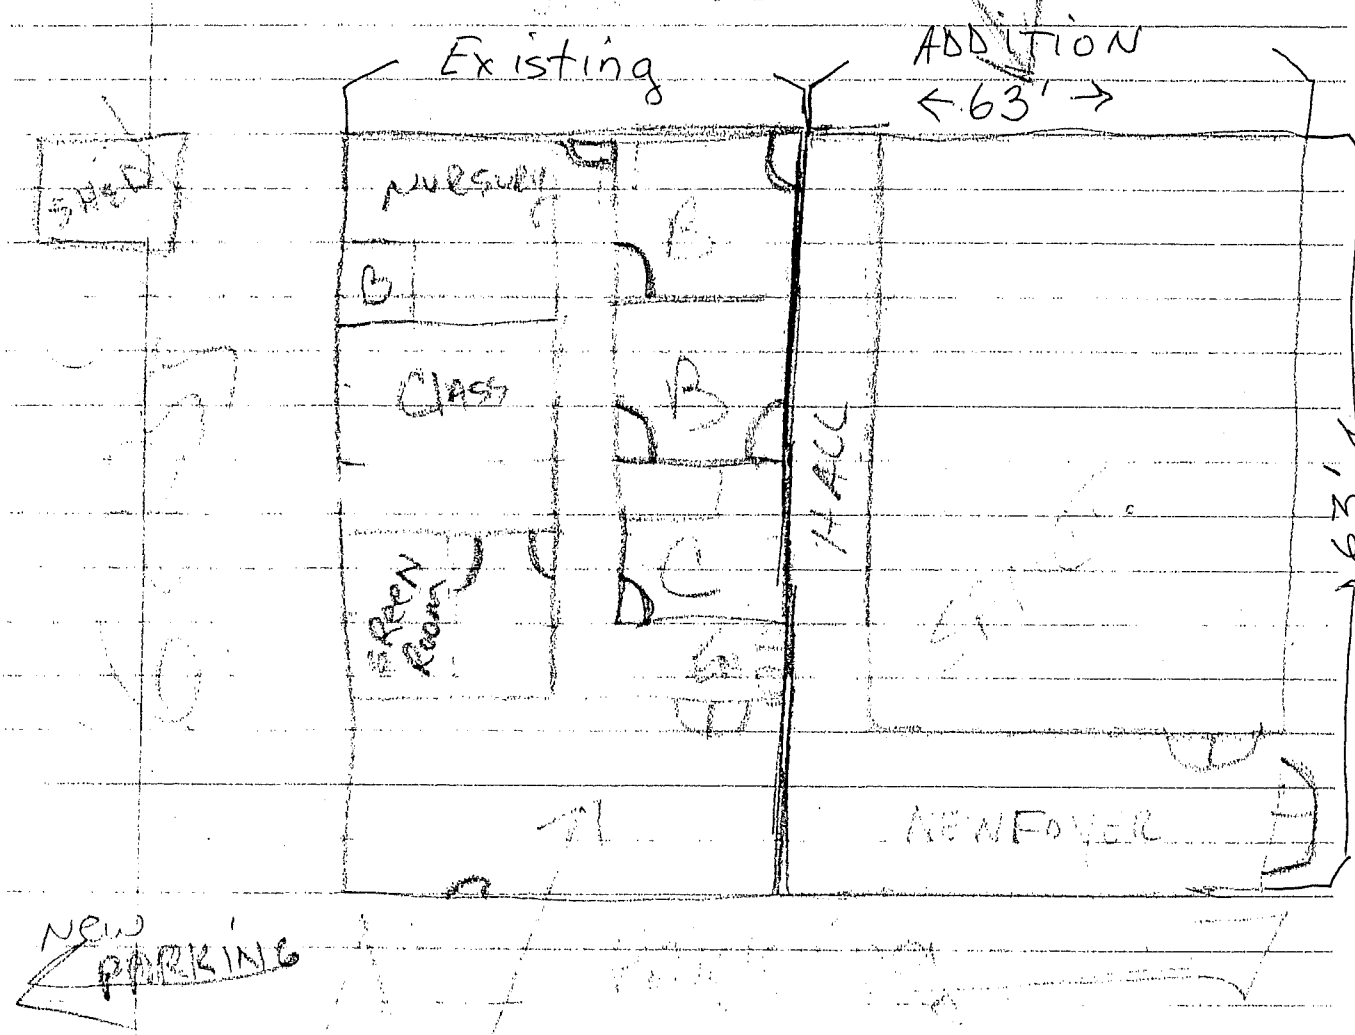 Existing
ADDITION
← 63' →
SHED
NURSURY
B
B
CLASS
B
HALL
63'
C
GREEN
ROOM
NEW FOYER
NEW
PARKING